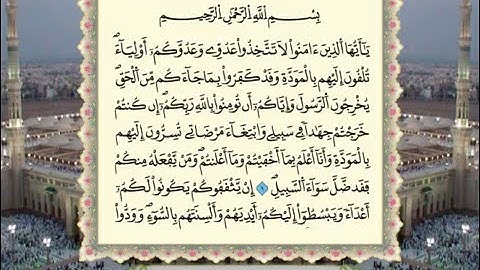 بِسْمِ اللَّهِ الرَّحْمَٰنِ الرَّحِيمِ
يَٰٓأَيُّهَا ٱلَّذِينَ ءَامَنُواْ لَا تَتَّخِذُواْ عَدُوِّے وَعَدُوَّكُمُۥٓ أَوْلِيَآءَ
تُلْقُونَ إِلَيْهِم بِالْمَوَدَّةِ وَقَدْ كَفَرُواْ بِمَا جَآءَكُم مِّنَ ٱلْحَقِّ
يُخْرِجُونَ ٱلرَّسُولَ وَإِيَّاكُمُۥٓ أَن تُومِنُواْ بِاللَّهِ رَبِّكُمُۥٓ إِن كُنتُمْ
خَرَجْتُمْ جِهَٰدًا فِے سَبِيلِے وَابْتِغَآءَ مَرْضَاتِے تُسِرُّونَ إِلَيْهِم
بِالْمَوَدَّةِ وَأَنَآ أَعْلَمُ بِمَآ أَخْفَيْتُمْ وَمَآ أَعْلَنتُمْ وَمَن يَفْعَلْهُ مِنكُمْ
فَقَد ضَّلَّ سَوَآءَ ٱلسَّبِيلِ ١ إِن يَثْقَفُوكُمْ يَكُونُواْ لَكُمُۥٓ
أَعْدَآءً وَيَبْسُطُوٓاْ إِلَيْكُمُۥٓ أَيْدِيَهُمْ وَأَلْسِنَتَهُم بِالسُّوٓءِ وَوَدُّواْ